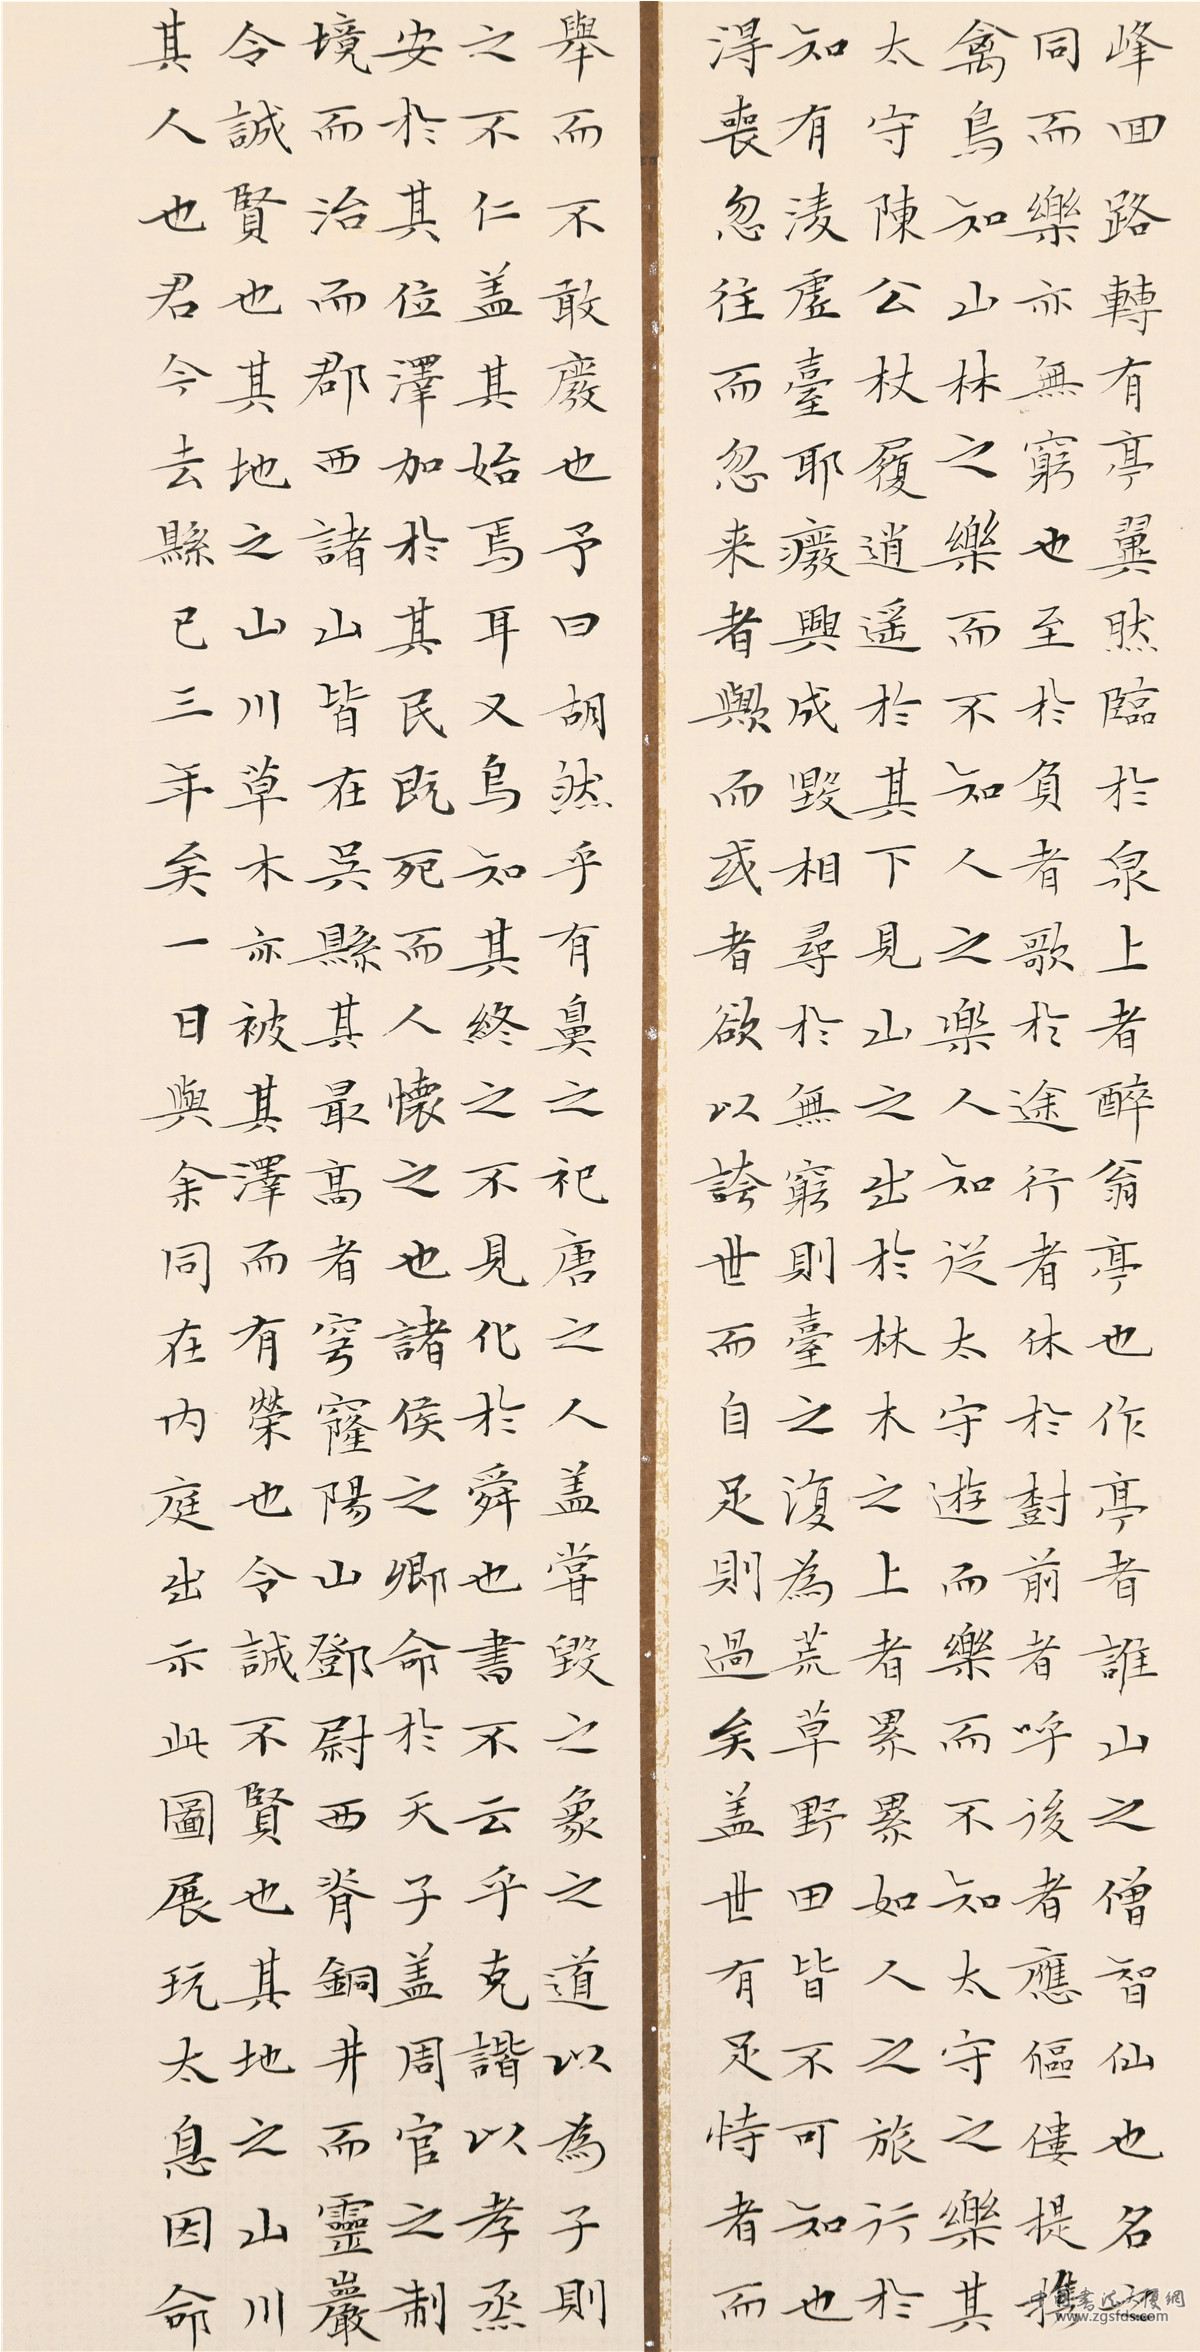 峰回路轉有亭翼然臨於泉上者醉翁亭也作亭者誰山之僧智仙也名之
同而樂亦無窮也至於負者歌於途行者休於樹前者呼後者應傴僂提攜
禽鳥知山林之樂而不知人之樂人知從太守遊而樂而不知太守之樂其
太守陳公杖履逍遙於其下見山之出於林木之上者累累如人之旅行於
知有凌虛臺耶廢興成毀相尋於無窮則臺之復為荒草野田皆不可知也
得喪忽往而忽来者歟而或者欲以誇世而自足則過矣盖世有足恃者而
舉而不敢廢也予曰胡然乎有鼻之祀唐之人盖嘗毀之象之道以為子則
之不仁盖其始焉耳又烏知其終之不見化於舜也書不云乎克諧以孝烝
安於其位澤加於其民既死而人懷之也諸侯之卿命於天子盖周官之制
境而治而郡西諸山皆在吳縣其最高者穹窿陽山鄧尉西脊銅井而靈巖
令誠賢也其地之山川草木亦被其澤而有榮也令誠不賢也其地之山川
其人也君今去縣已三年矣一日與余同在内庭出示此圖展玩太息因命
www.zgsfds.com